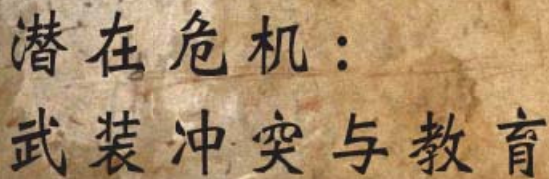 潜在危机：
武装冲突与教育